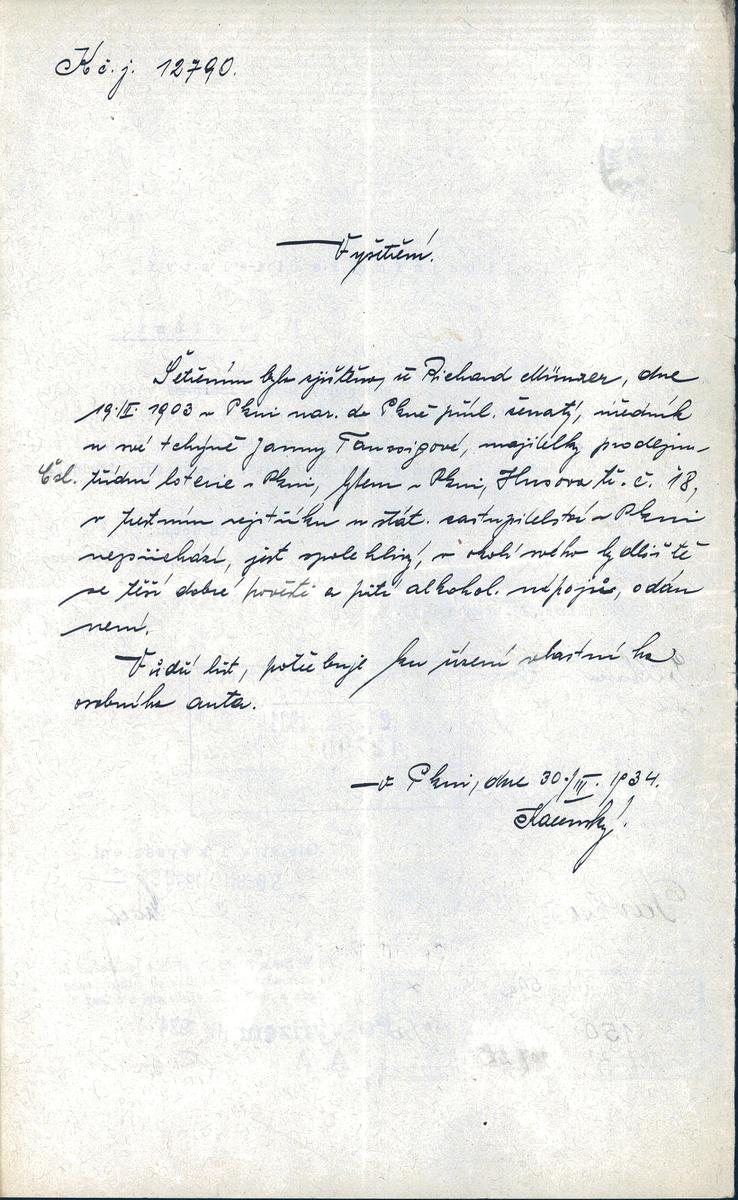 K č. j. 12790.
Vyšetření.
Šetřením bylo zjištěno, že Richard Münzer, dne
19./II. 1903 v Plzni nar. do Plzně přísl. ženatý, úředník
u své tchýně Janny Taussigové, majitelky prodejny
Čsl. třídní loterie v Plzni, bytem v Plzni, Husova tř. č. 18,
v trestním rejstříku u stát. zastupitelství v Plzni
nepřichází, jest spolehlivý, v okolí svého bydliště
se těší dobré pověsti a pití alkohol. nápojů, oddán
není.
Vůdčí list, potřebuje ku řízení vlastního
osobního auta.
V Plzni, dne 30./III. 1934.